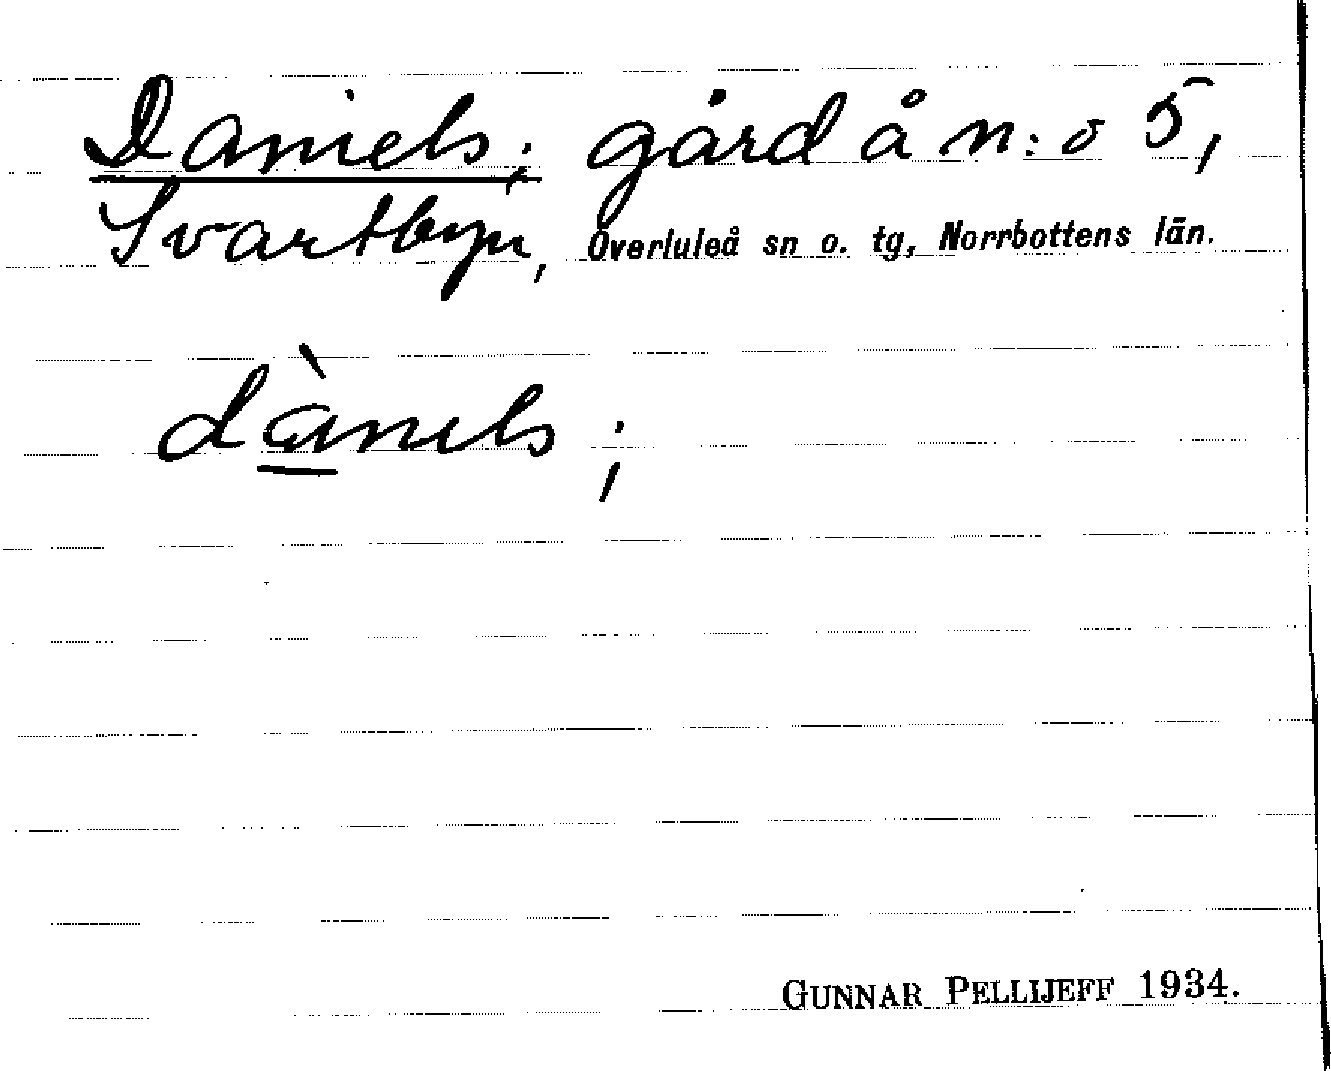 Daniels; gård å n:o 5,
Svartbyn, Överluleå sn o. tg, Norrbottens län.
dànils;
GUNNAR PELLIJEFF 1934.